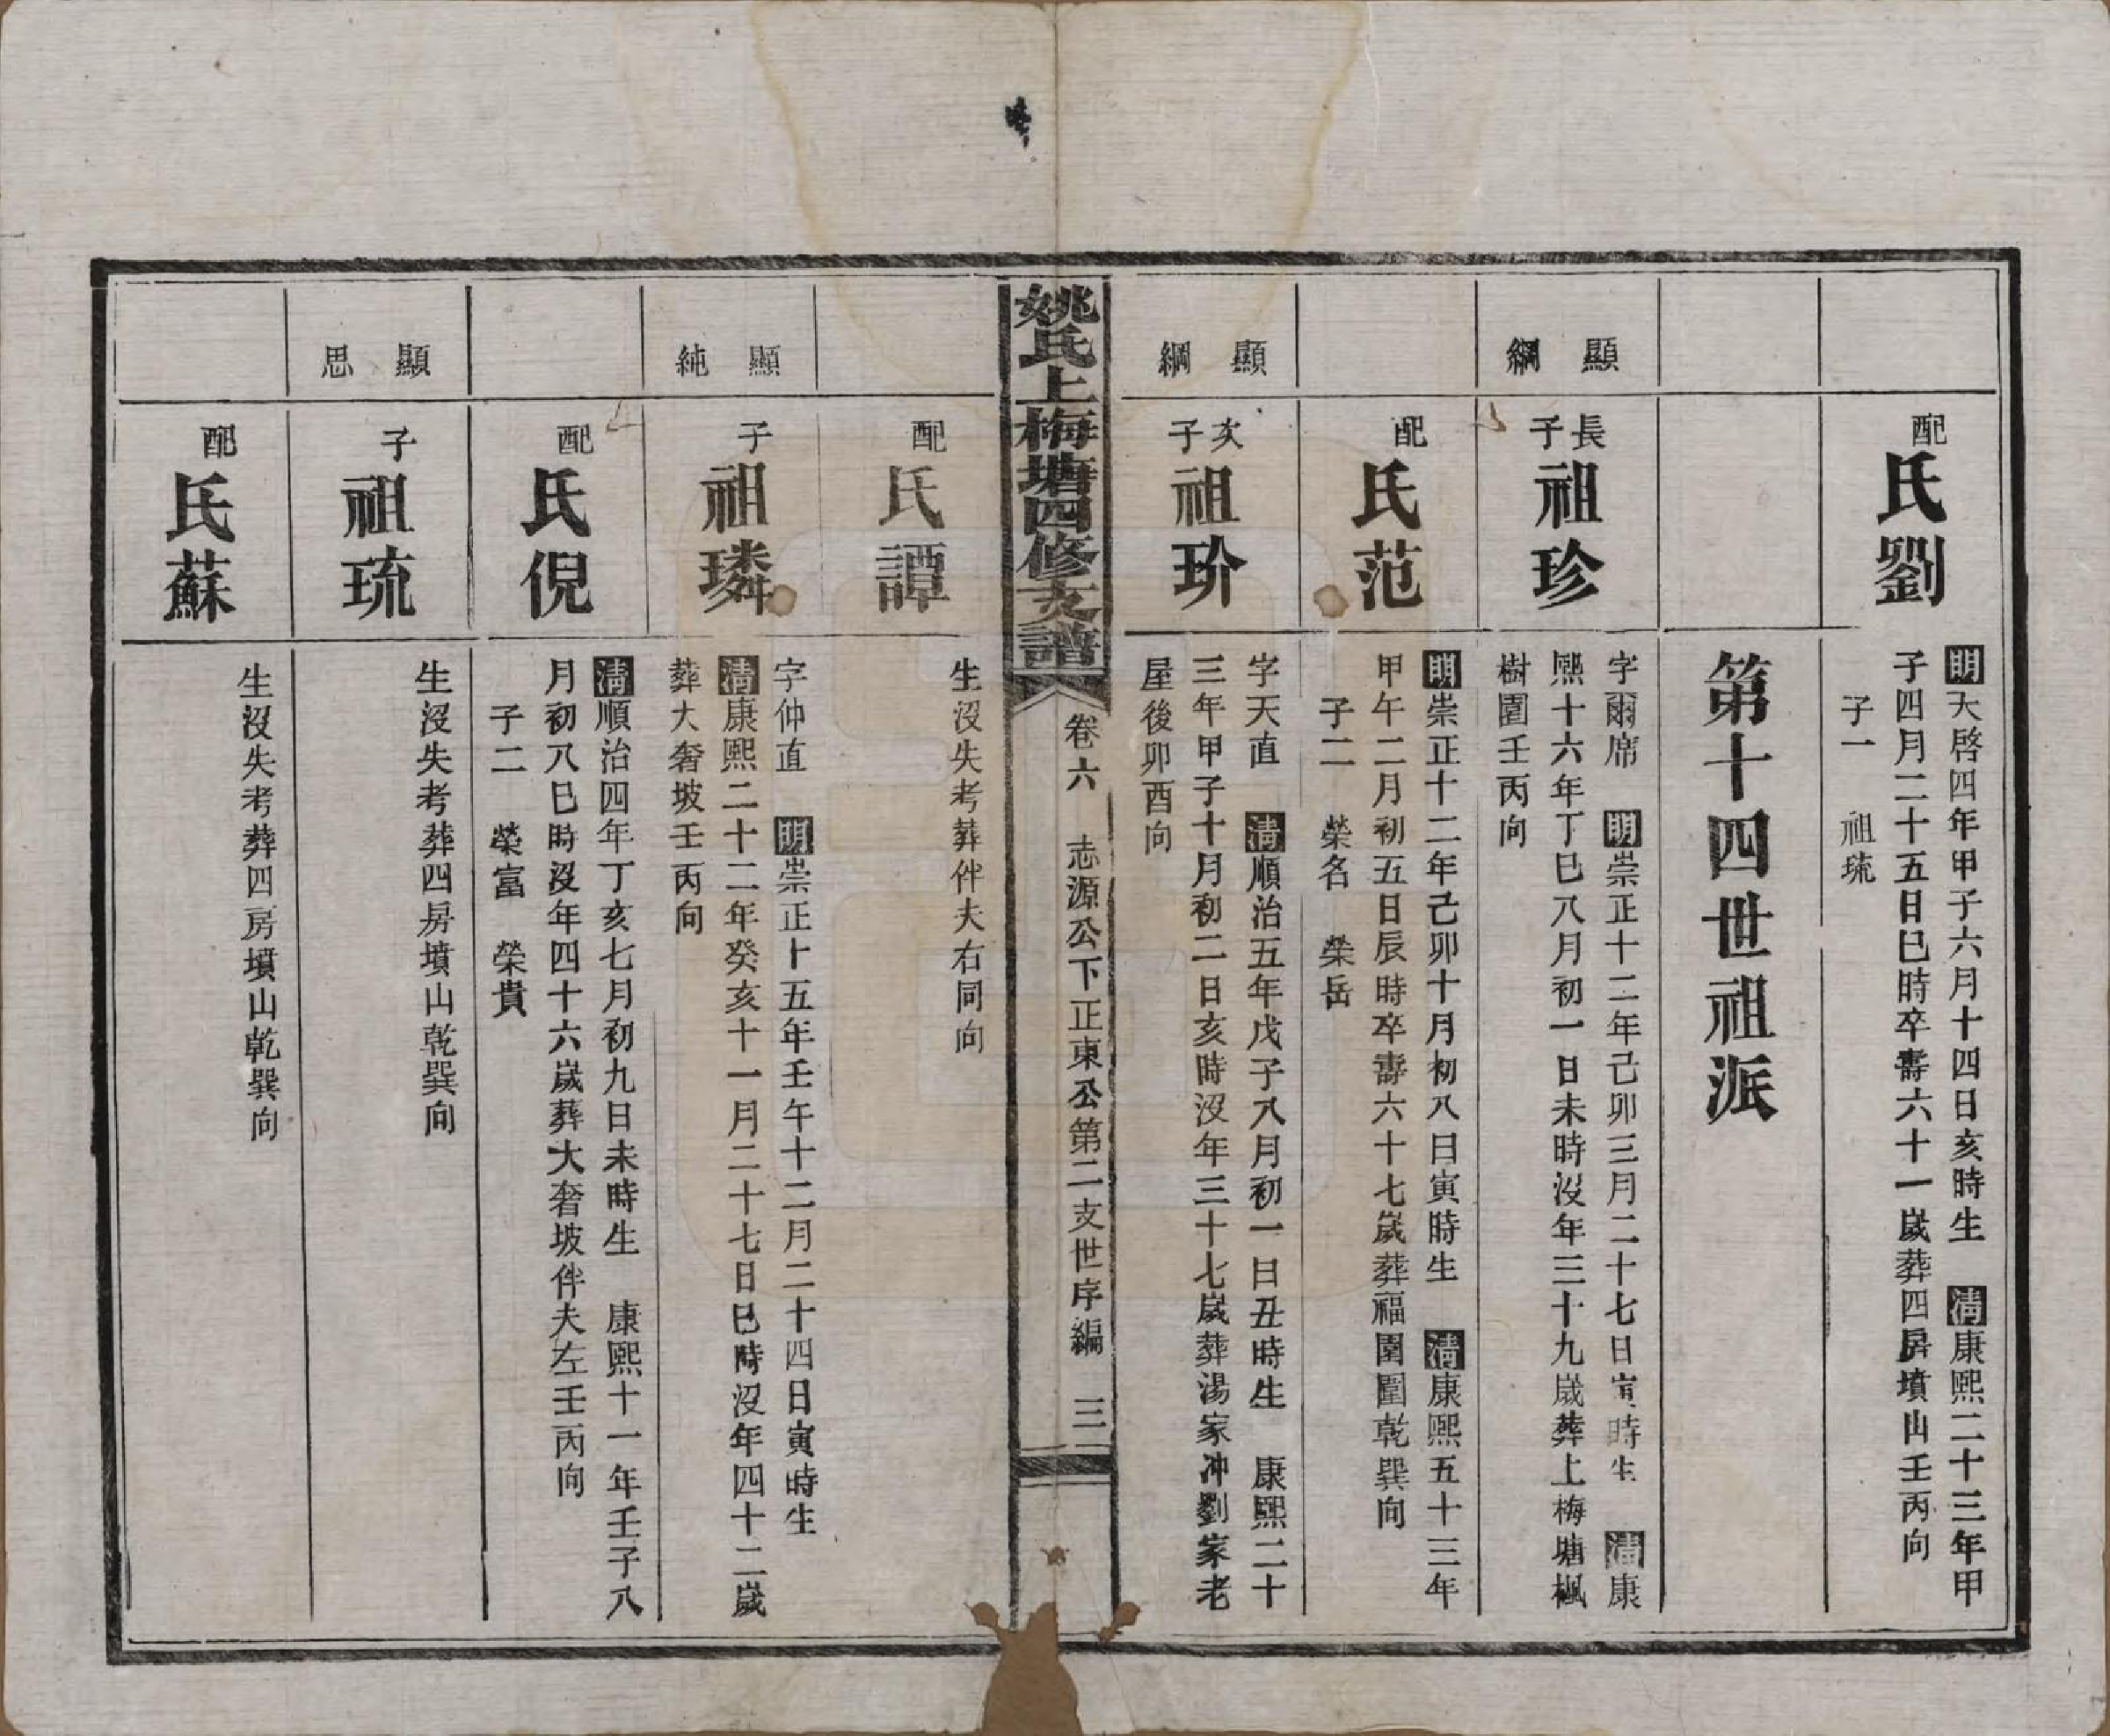 配
氏劉
明天啓四年甲子六月十四日亥時生　清康熙二十三年甲
子四月二十五日巳時卒壽六十一歲葬四房墳山壬丙向
子一　祖琉
第十四世祖派
顯綱
長子
祖珍
字爾席　明崇正十二年己卯三月二十七日寅時生　清康
熙十六年丁巳八月初一日未時沒年三十九歲葬上梅塘楓
樹園壬丙向
配
氏范
明崇正十二年己卯十月初八日寅時生　清康熙五十三年
甲午二月初五日辰時卒壽六十七歲葬福園圍乾巽向
子二　榮名　榮岳
顯綱
次子
祖玠
字天直　清順治五年戊子八月初一日丑時生　康熙二十
三年甲子十月初二日亥時沒年三十七歲葬湯家冲劉家老
屋後卯酉向
姚氏上梅塘四修支譜
卷六　志源公下正東公第二支世序編　三
配
氏譚
生沒失考葬伴夫右同向
顯純
子
祖璘
字仲直　明崇正十五年壬午十二月二十四日寅時生
清康熙二十二年癸亥十一月二十七日巳時沒年四十二歲
葬大奢坡壬丙向
配
氏倪
清順治四年丁亥七月初九日未時生　康熙十一年壬子八
月初八巳時沒年四十六歲葬大奢坡伴夫左壬丙向
子二　榮富　榮貴
顯思
子
祖琉
生沒失考葬四房墳山乾巽向
配
氏蘇
生沒失考葬四房墳山乾巽向